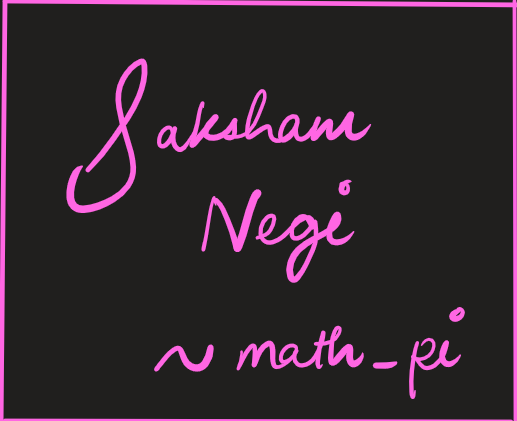 Saksham
Negi
~ math_pi